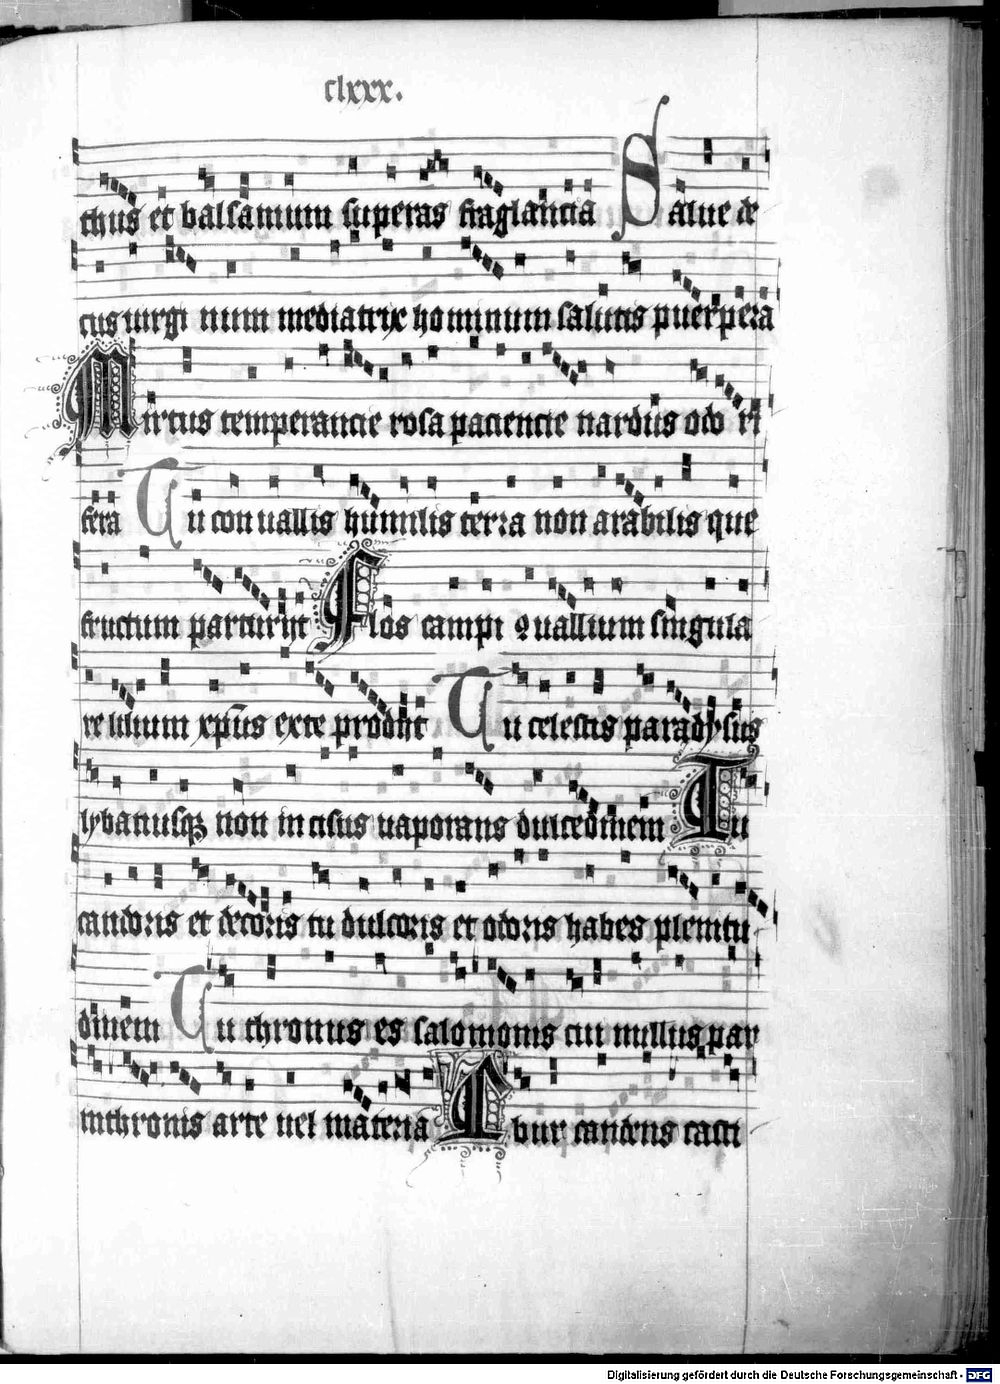 clxxx.
thus et balsamum superas fraglanciā Salue de
cus uirgi num mediatrix hominum salutis puerpera
Mirtus temperancie rosa paciencie nardus odo ri
fera Tu con uallis humilis terra non arabilis que
fructum parturijt Flos campi ꝯuallium singula
re lilium xp̄us exte prodijt Tu celestis paradysus
lybanusqꝫ non in cisus uaporans dulcedinem Tu
candoris et decoris tu dulcoris et odoris habes plenitu
dinem Tu thronus es salomonis cui nullus par
inthronis arte uel materia Ebur candens casti
Digitalisierung gefördert durch die Deutsche Forschungsgemeinschaft - DFG